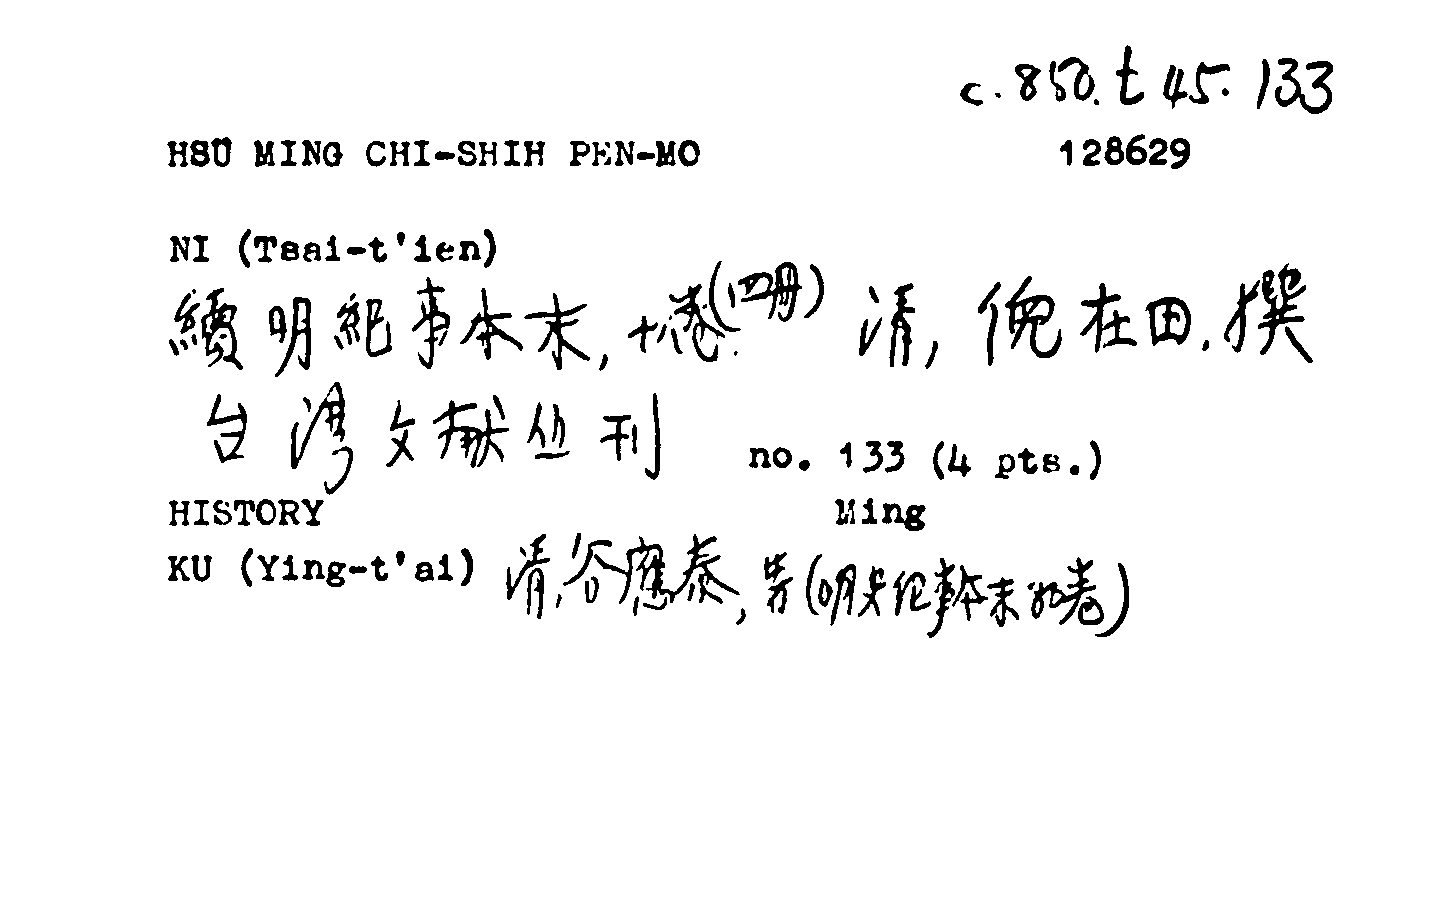 c.850.t 45.133
HSÜ MING CHI-SHIH PEN-MO 128629
NI (Tsai-t'ien)
續明紀事本末, 十八卷(四冊) 清, 倪在田.撰
台湾文献丛刊 no. 133 (4 pts.)
HISTORY Ming
KU (Ying-t'ai) 清,谷應泰, (明史纪事本末 卷)